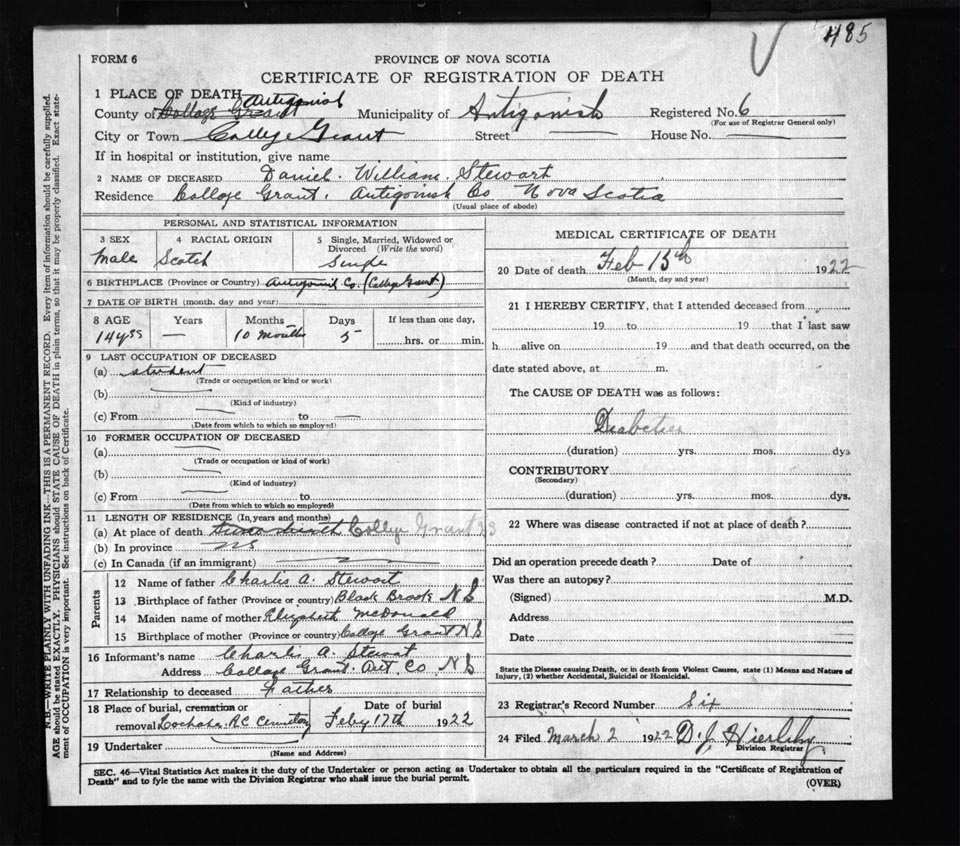 485
FORM 6
PROVINCE OF NOVA SCOTIA
CERTIFICATE OF REGISTRATION OF DEATH
1 PLACE OF DEATH
County of College Grant Antigonish Municipality of Antigonish Registered No. 6
(For use of Registrar General only)
City or Town College Grant Street House No.
If in hospital or institution, give name
2 NAME OF DECEASED Daniel William Stewart
Residence College Grant. Antigonish Co Nova Scotia
(Usual place of abode)
PERSONAL AND STATISTICAL INFORMATION
3 SEX 4 RACIAL ORIGIN 5 Single, Married, Widowed or Divorced (Write the word)
Male Scotch Single
6 BIRTHPLACE (Province or Country) Antigonish Co. (College Grant)
7 DATE OF BIRTH (month, day and year)
8 AGE Years Months Days If less than one day,
14 yrs — 10 months 5 hrs. or min.
9 LAST OCCUPATION OF DECEASED
(a) student
(Trade or occupation or kind or work)
(b)
(Kind of industry)
(c) From to
(Date from which to which so employed)
10 FORMER OCCUPATION OF DECEASED
(a)
(Trade or occupation or kind of work)
(b)
(Kind of industry)
(c) From to
(Date from which to which so employed)
11 LENGTH OF RESIDENCE (In years and months)
(a) At place of death College Grant
(b) In province
(c) In Canada (if an immigrant)
Parents
12 Name of father Charlis A. Stewart
13 Birthplace of father (Province or country) Black Brook N S
14 Maiden name of mother Elizabeth McDonald
15 Birthplace of mother (Province or country) College Grant N S
16 Informant's name Charlis A. Stewart
Address College Grant. Ant. Co N S
17 Relationship to deceased Father
18 Place of burial, cremation or Date of burial
removal Lochaber. RC Cemetery Feby 17th 1922
19 Undertaker
(Name and Address)
MEDICAL CERTIFICATE OF DEATH
20 Date of death Feb 15th 1922
(Month, day and year)
21 I HEREBY CERTIFY, that I attended deceased from
19 to 19 that I last saw
h alive on 19 and that death occurred, on the
date stated above, at m.
The CAUSE OF DEATH was as follows:
Diabeties
(duration) yrs. mos. dys
CONTRIBUTORY
(Secondary)
(duration) yrs. mos. dys.
22 Where was disease contracted if not at place of death?
Did an operation precede death? Date of
Was there an autopsy?
(Signed) M.D.
Address
Date
State the Disease causing Death, or in death from Violent Causes, state (1) Means and Nature of
Injury, (2) whether Accidental, Suicidal or Homicidal.
23 Registrar's Record Number Six
24 Filed March 2 1922 D. J. Hierlihy
Division Registrar
SEC. 46—Vital Statistics Act makes it the duty of the Undertaker or person acting as Undertaker to obtain all the particulars required in the "Certificate of Registration of
Death" and to fyle the same with the Division Registrar who shall issue the burial permit.
(OVER)
N.B.—WRITE PLAINLY WITH UNFADING INK—THIS IS A PERMANENT RECORD. Every item of information should be carefully supplied.
AGE should be stated EXACTLY. PHYSICIANS should STATE CAUSE OF DEATH in plain terms, so that it may be properly classified. Exact state-
ment of OCCUPATION is very important. See instructions on back of Certificate.